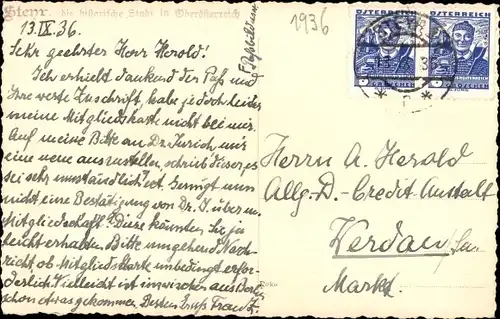 Steyr. die historische Stadt in Oberösterreich.
13.IX.36.
Sehr geehrter Herr Herold!
Ich erhielt dankend der Paß und
Ihre werte Zuschrift, habe jedoch leider
meine Mitgliedskarte nicht bei mir.
Auf meine Bitte an Dr. Jurich mir
eine neue auszustellen, schrieb dieser, es
sei sehr umständlich! Genügt nun
nicht eine Bestätigung von Dr. J. über m.
Mitgliedschaft? Diese könnten Sie ja
leicht erhalten. Bitte umgehend Nach-
richt ob Mitgliedskarte unbedingt erfor-
derlich. Vielleicht ist inzwischen aus Berlin
schon etwas gekommen. Besten Gruß Franz
1936
ÖSTERREICH
ÖSTERREICH
GROSCHEN
GROSCHEN
Herrn A. Herold
Allg. D. Credit Anstalt
Werdau/Sa.
Markt.